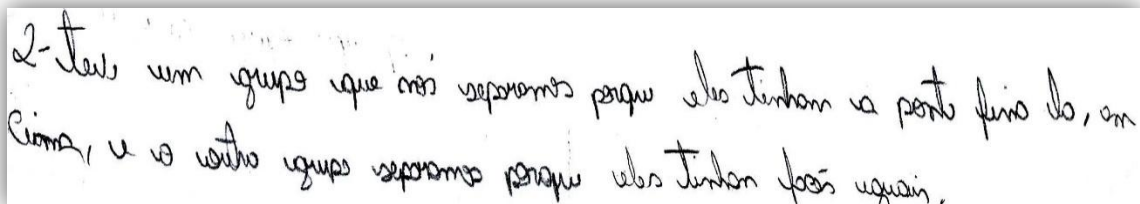 2-teve um grupo que nós separamos porque eles tinham a ponta fina la, em
cima, e o outro grupo separamos porque eles tinham